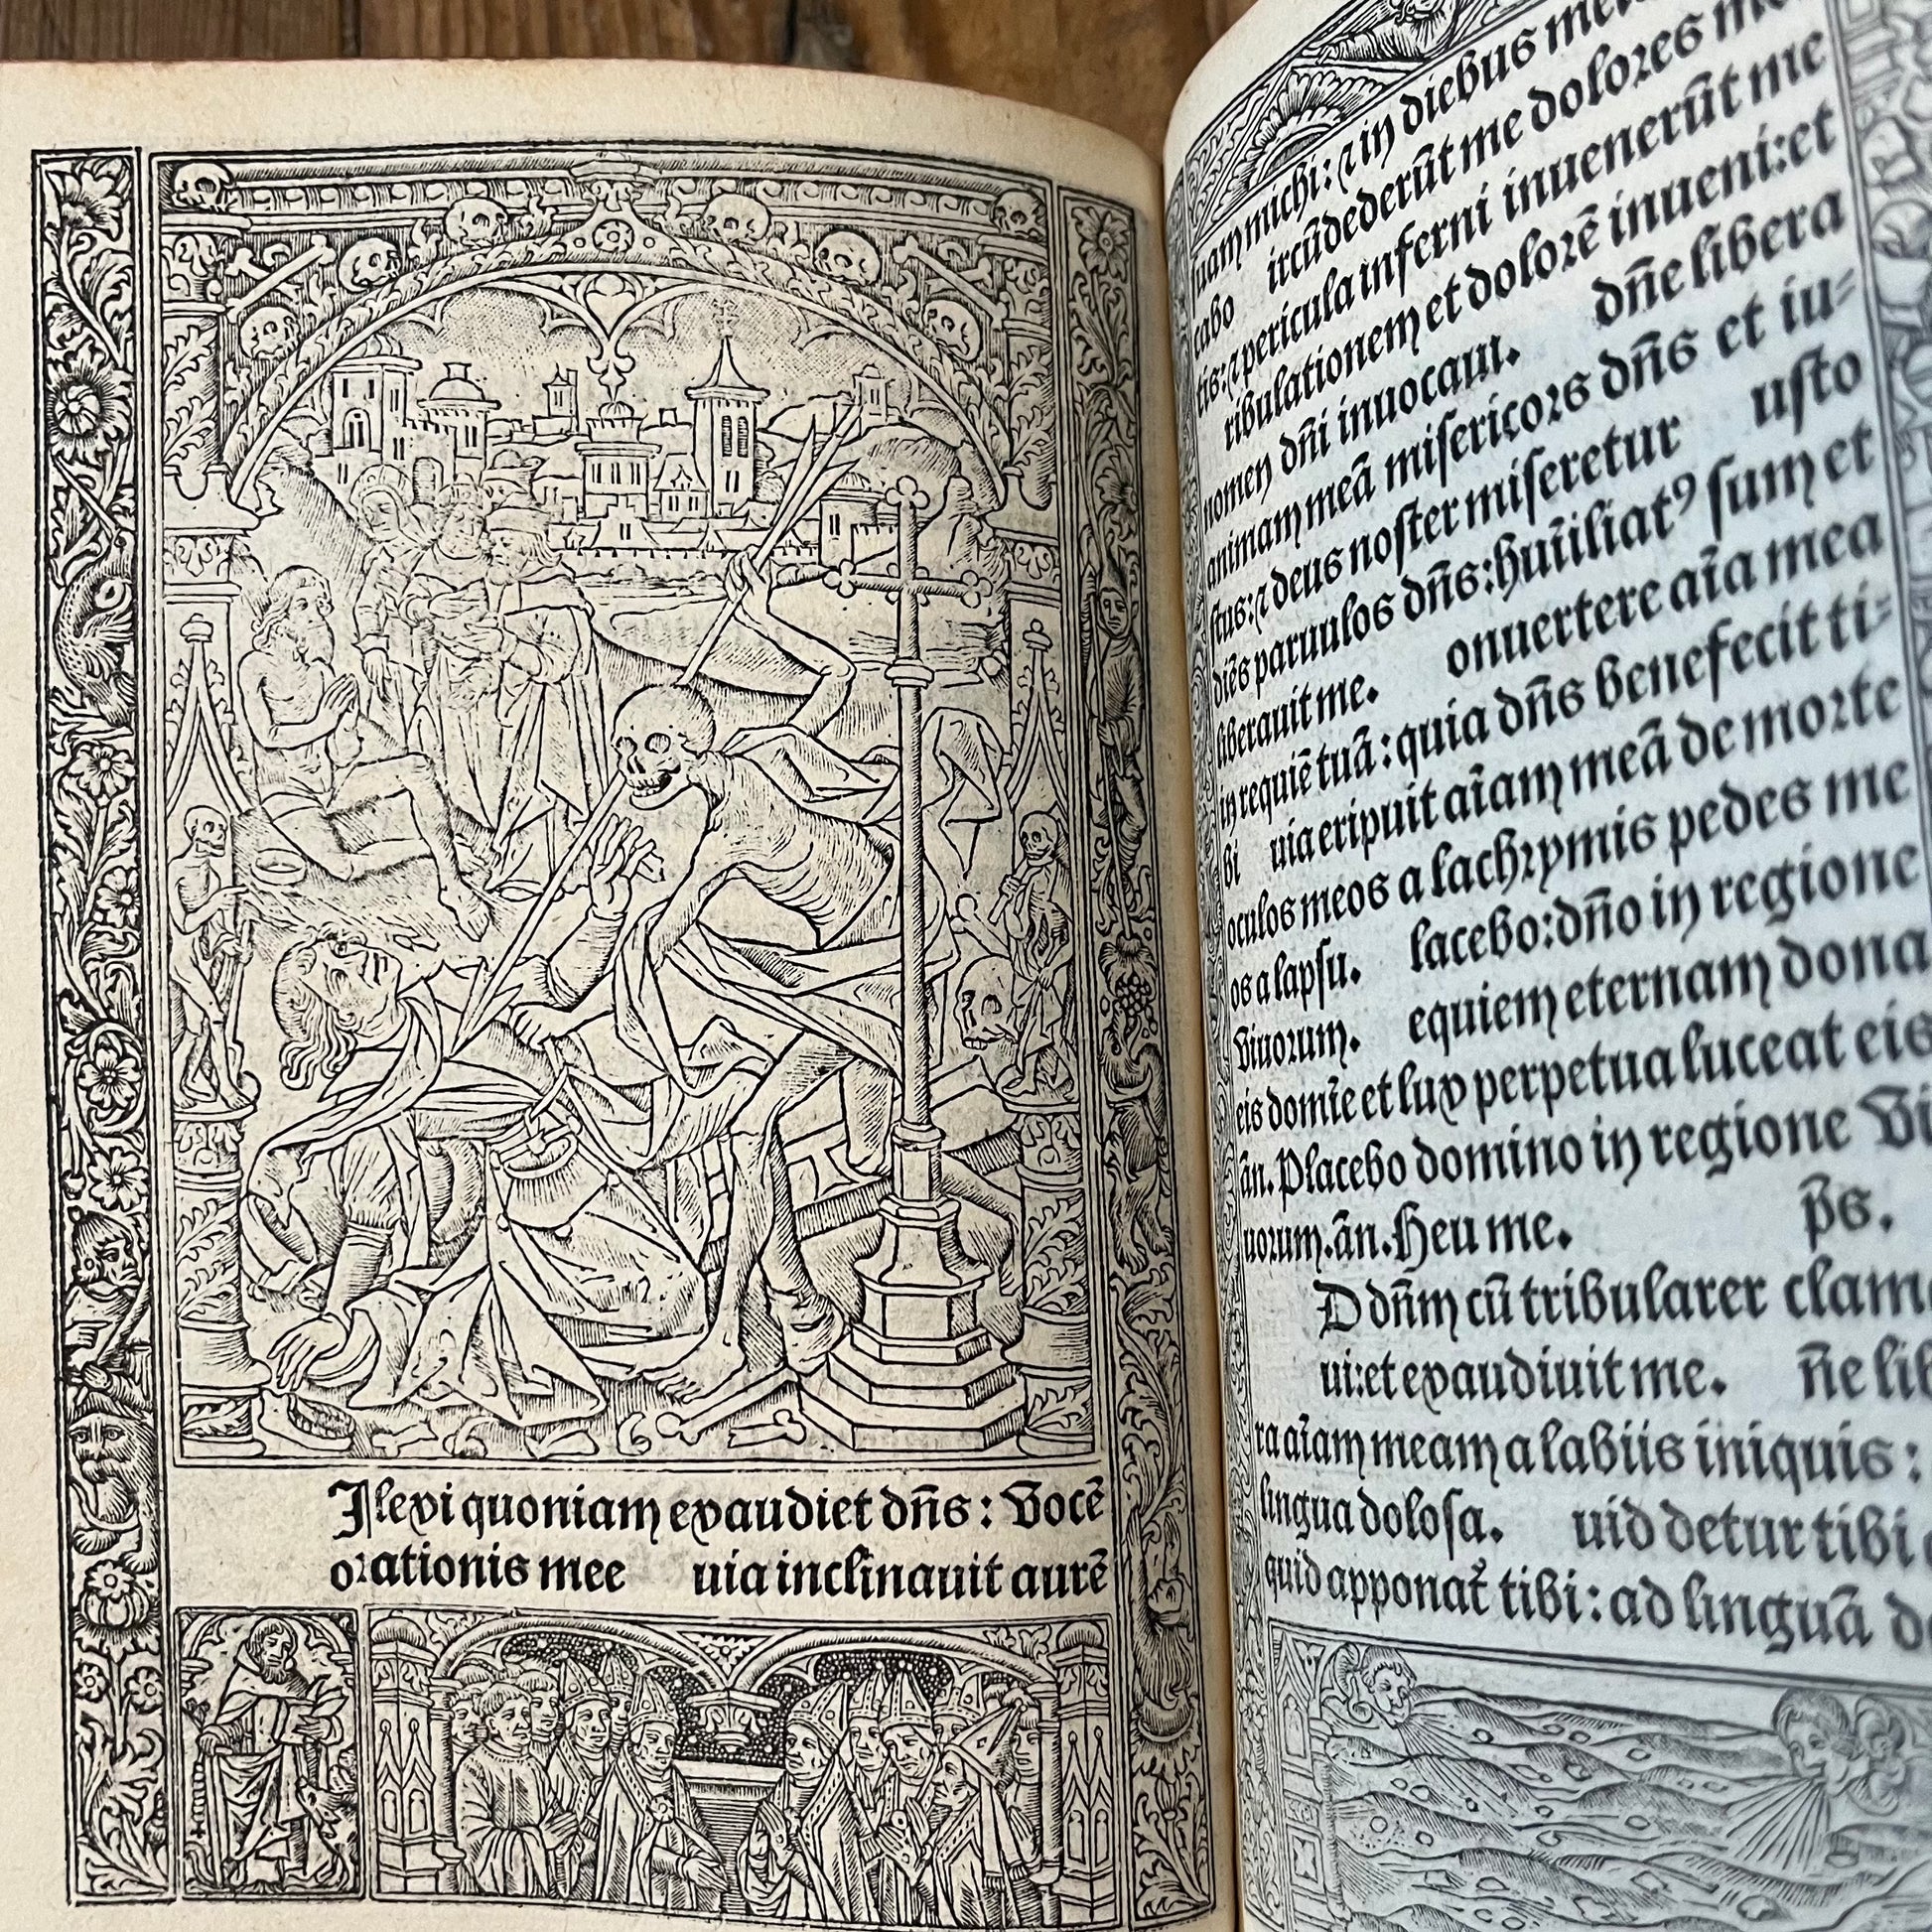 Ilexi quoniam exaudiet dñs : Vocē
orationis mee uia inclinauit aurē
michi: ⁊ in diebus
cabo ircūdederūt me dolores
tis: ⁊ pericula inferni inuenerūt me
ribulationem et dolorē inueni: et
nomen dñi inuocaui. dñe libera
animam meā misericors dñs et iu⸗
stus: ⁊ deus noster miseretur usto
diēs paruulos dñs: hūiliatꝰ sum et
liberauit me. onuertere aīa mea
in requiē tuā: quia dñs benefecit ti⸗
bi uia eripuit aīam meā de morte
oculos meos a lachrymis pedes me
os a lapsu. lacebo: dño in regione
Viuorum. equiem eternam dona
eis domīe et lux perpetua luceat eis
ān. Placebo domino in regione Vi
uorum. ān. Heu me. p̄s.
D dñm cū tribularer clam
ui: et exaudiuit me. ñe lib
ra aīam meam a labiis iniquis :
lingua dolosa. uid detur tibi
quid apponat᷑ tibi : ad linguā